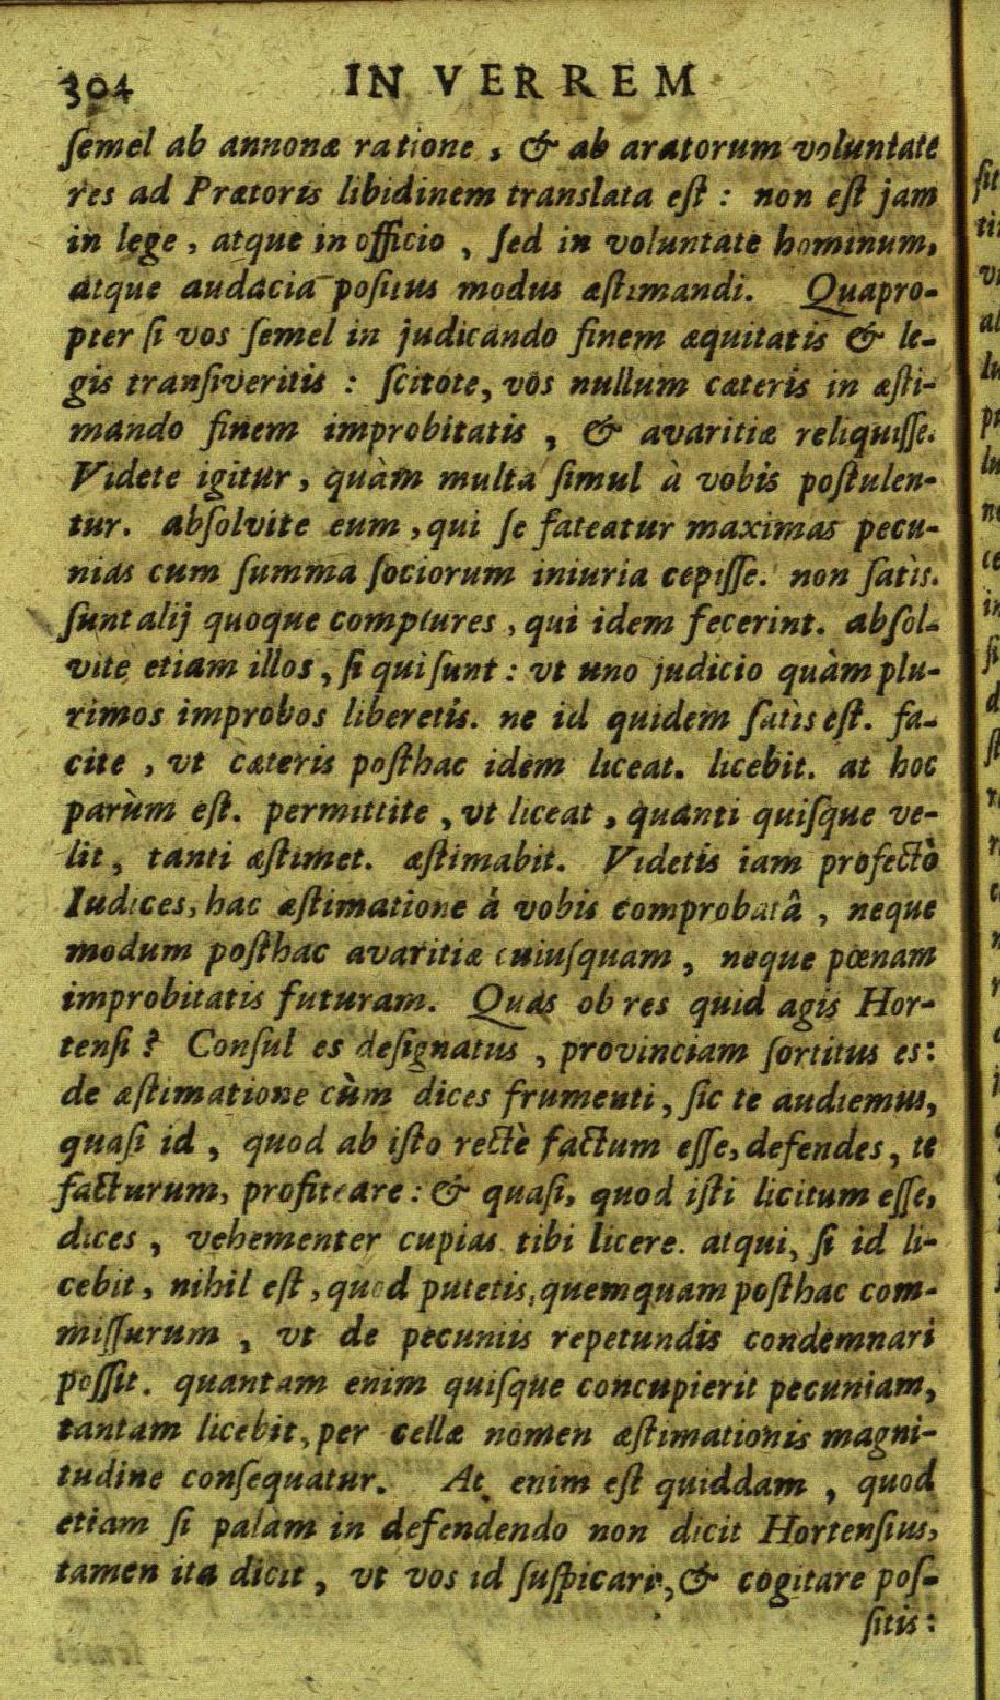 304 IN VERREM
semel ab annonæ ratione, & ab aratorum voluntate
res ad Prætoris libidinem translata est : non est jam
in lege, atque in officio, sed in voluntate hominum,
atque audacia positus modus æstimandi. Quapro-
pter si vos semel in judicando finem æquitatis & le-
gis transiveritis : scitote, vos nullum cæteris in æsti-
mando finem improbitatis, & avaritiæ reliquisse.
Videte igitur, quàm multa simul à vobis postulen-
tur. absolvite eum, qui se fateatur maximas pecu-
nias cum summa sociorum iniuria cepisse. non satìs.
sunt alij quoque complures, qui idem fecerint. absol-
vite etiam illos, si qui sunt : vt uno judicio quàm plu-
rimos improbos liberetis. ne id quidem satìs est. fa-
cite, vt cæteris posthac idem liceat. licebit. at hoc
parùm est. permittite, vt liceat, quanti quisque ve-
lit, tanti æstimet. æstimabit. Videtis iam profectò
Iudices, hac æstimatione à vobis comprobatâ, neque
modum posthac avaritiæ cuiusquam, neque pœnam
improbitatis futuram. Quas ob res quid agis Hor-
tensi? Consul es designatus, provinciam sortitus es:
de æstimatione cùm dices frumenti, sic te audiemus,
quasi id, quod ab isto rectè factum esse, defendes, te
facturum, profiteare : & quasi, quod isti licitum esse,
dices, vehementer cupias tibi licere. atqui, si id li-
cebit, nihil est, quod putetis, quemquam posthac com-
missurum, vt de pecuniis repetundis condemnari
possit. quantam enim quisque concupierit pecuniam,
tantam licebit, per cellæ nomen æstimationis magni-
tudine consequatur. At enim est quiddam, quod
etiam si palam in defendendo non dicit Hortensius,
tamen ita dicit, vt vos id suspicari, & cogitare pos-
sitis :